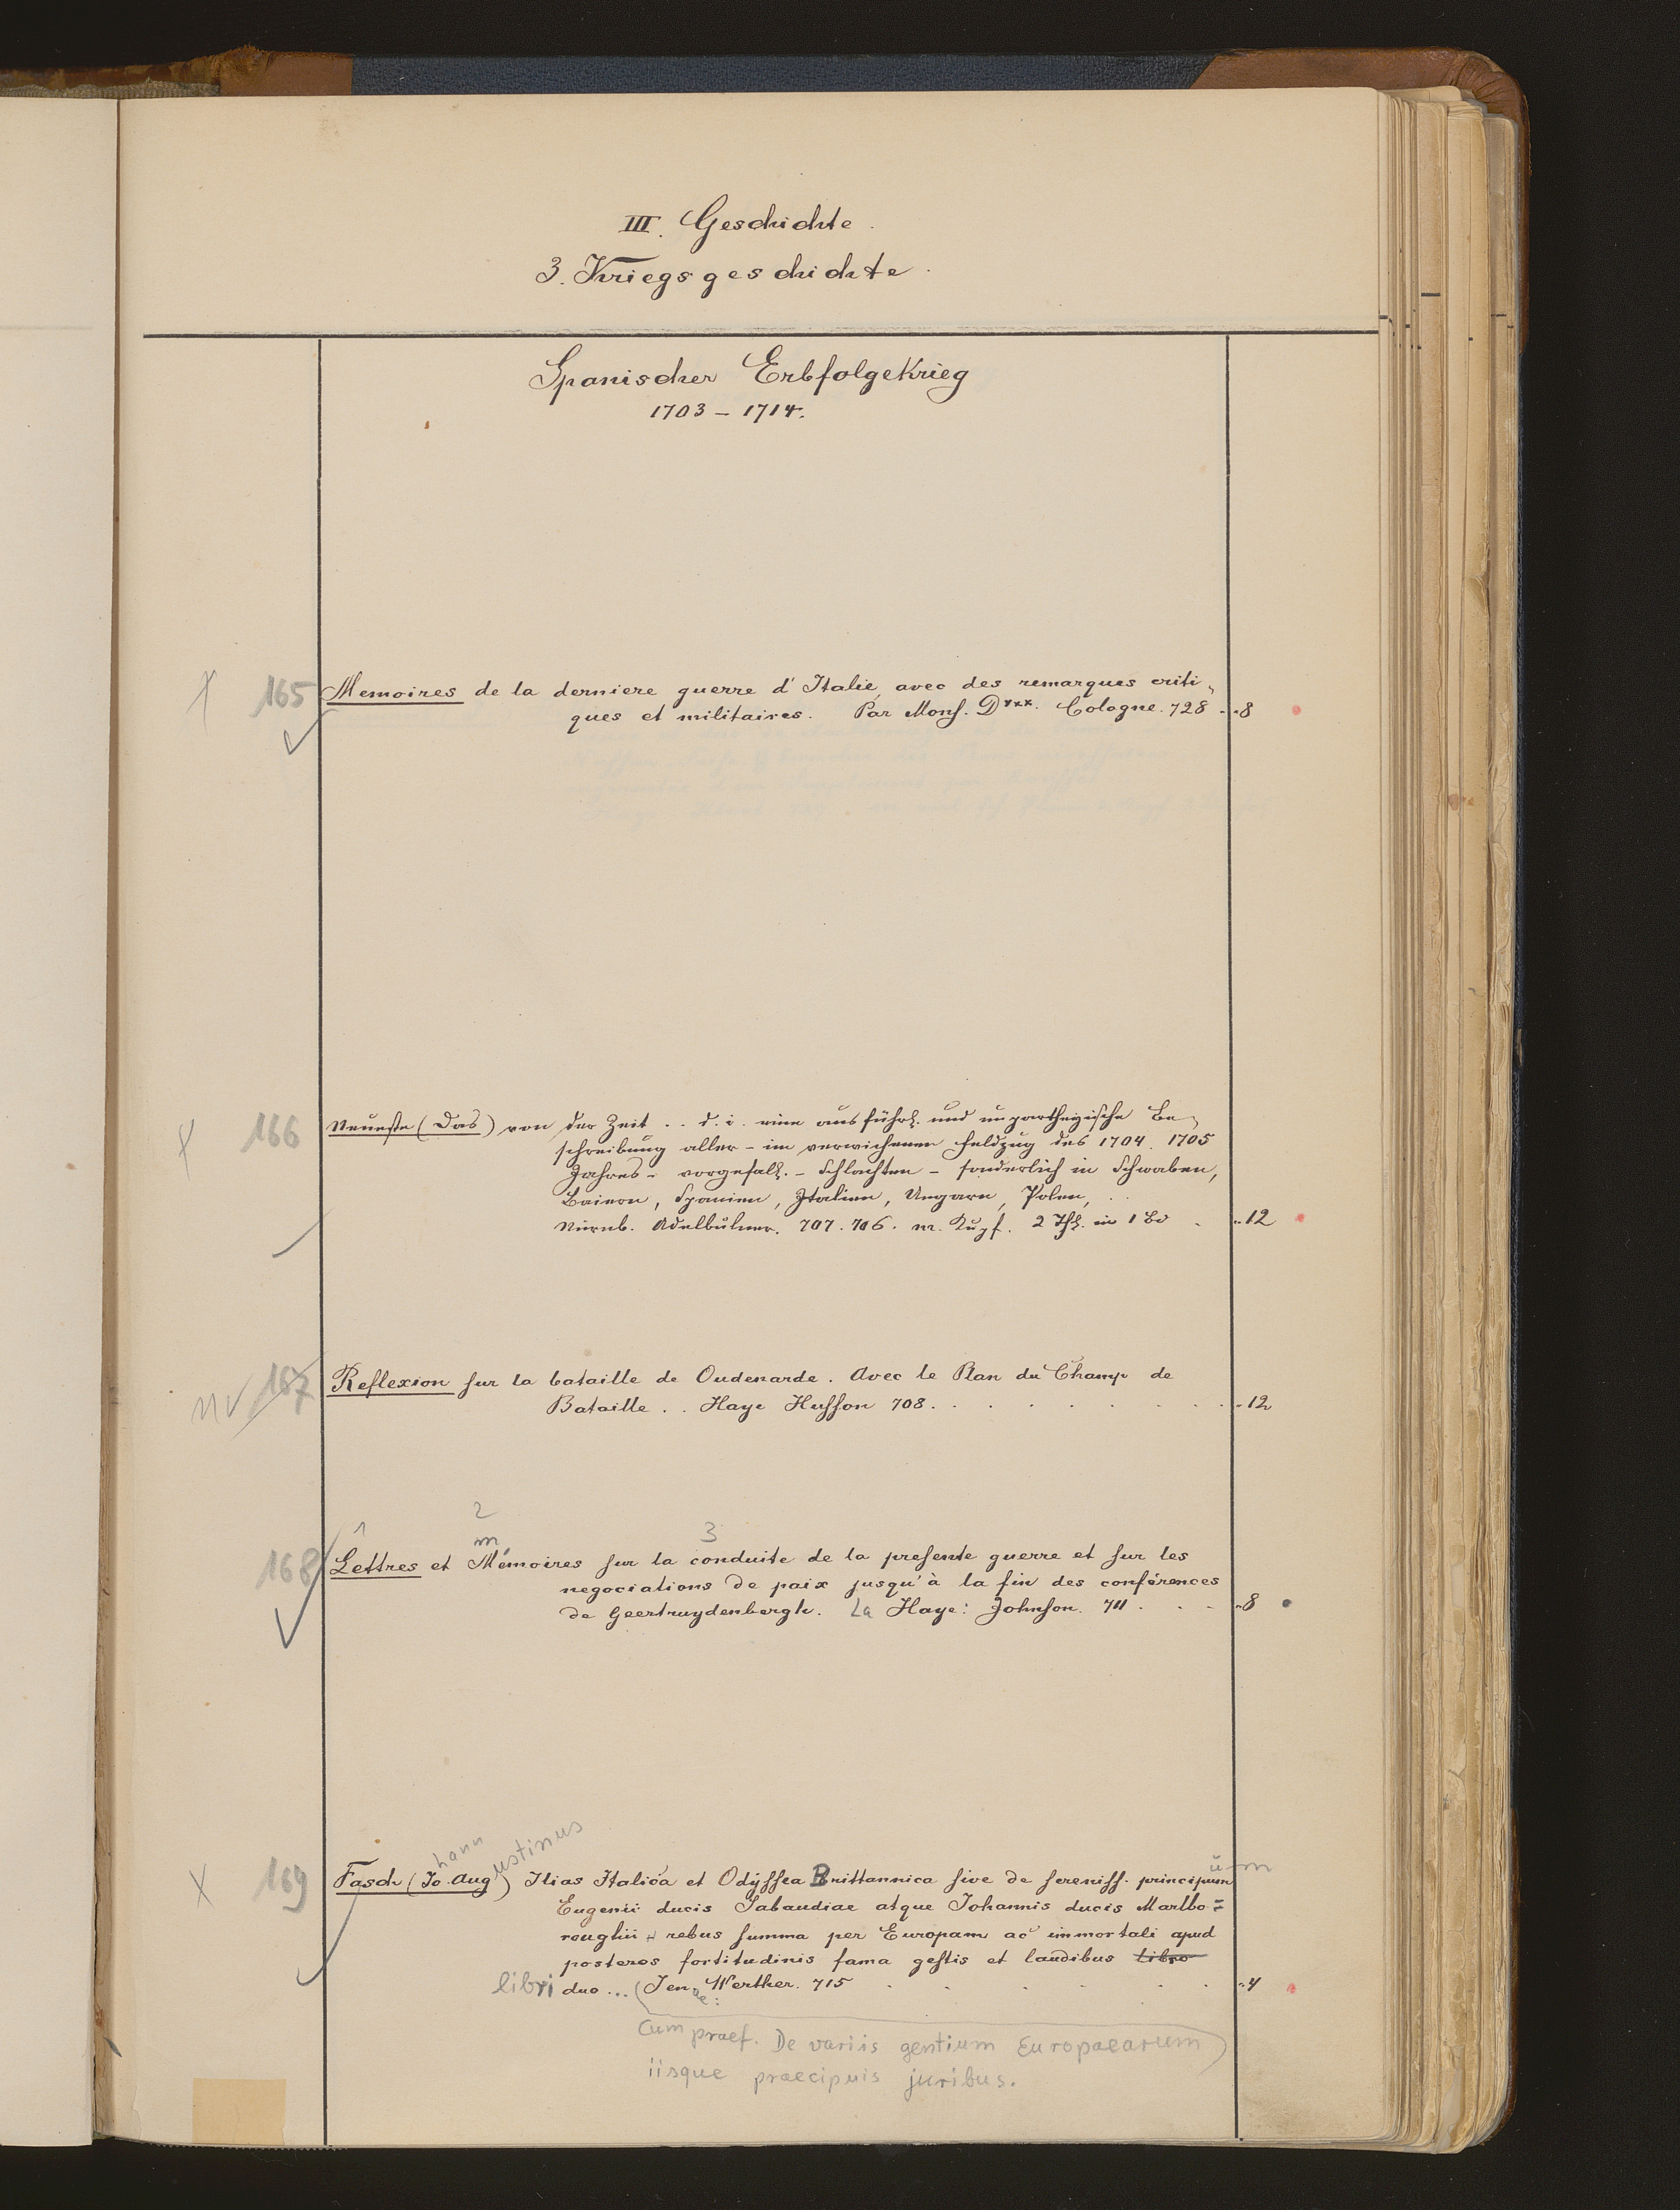 III. Geschichte.
3. Kriegsgeschichte.
Spanischer Erbfolgekrieg
1703 – 1714.
165 Memoires de la derniere guerre d'Italie, avec des remarques criti-
ques et militaires. Par Mons. D***. Cologne. 728 . „8
166 Neueste (Das) von der Zeit .. d. i. eine ausführl. und unpartheyische Be-
schreibung aller – im verwichenen Feldzug des 1704. 1705
Jahres – vorgefall. – Schlachten – sonderlich in Schwaben,
Baiern, Spanien, Italien, Ungarn, Polen, ..
Nürnb. Adelbülner. 707. 706. m. Kupf. 2 Thl. in 1 Bd . „12
nv 167 Reflexion sur la bataille de Oudenarde. Avec le Plan du Champ de
Bataille .. Haye Husson 708. . . . . . . . „12
1 2 3
m
168 Lettres et Mémoires sur la conduite de la presente guerre et sur les
negociations de paix jusqu'à la fin des conférences
de Geertruydenbergh. La Haye: Johnson. 711 . . . „8
hann ustinus
169 Fasch (Jo. Aug) Ilias Italica et Odyssea Brittannica sive de sereniss. principum
Eugenii ducis Sabaudiae atque Johannis ducis Marlbo=
roughii rebus summa per Europam ac immortali apud
posteros fortitudinis fama gestis et laudibus libro
libri duo ... (Jenae: Werther. 715 . . . . . . „4
Cum praef. De variis gentium Europaearum)
iisque praecipuis juribus.